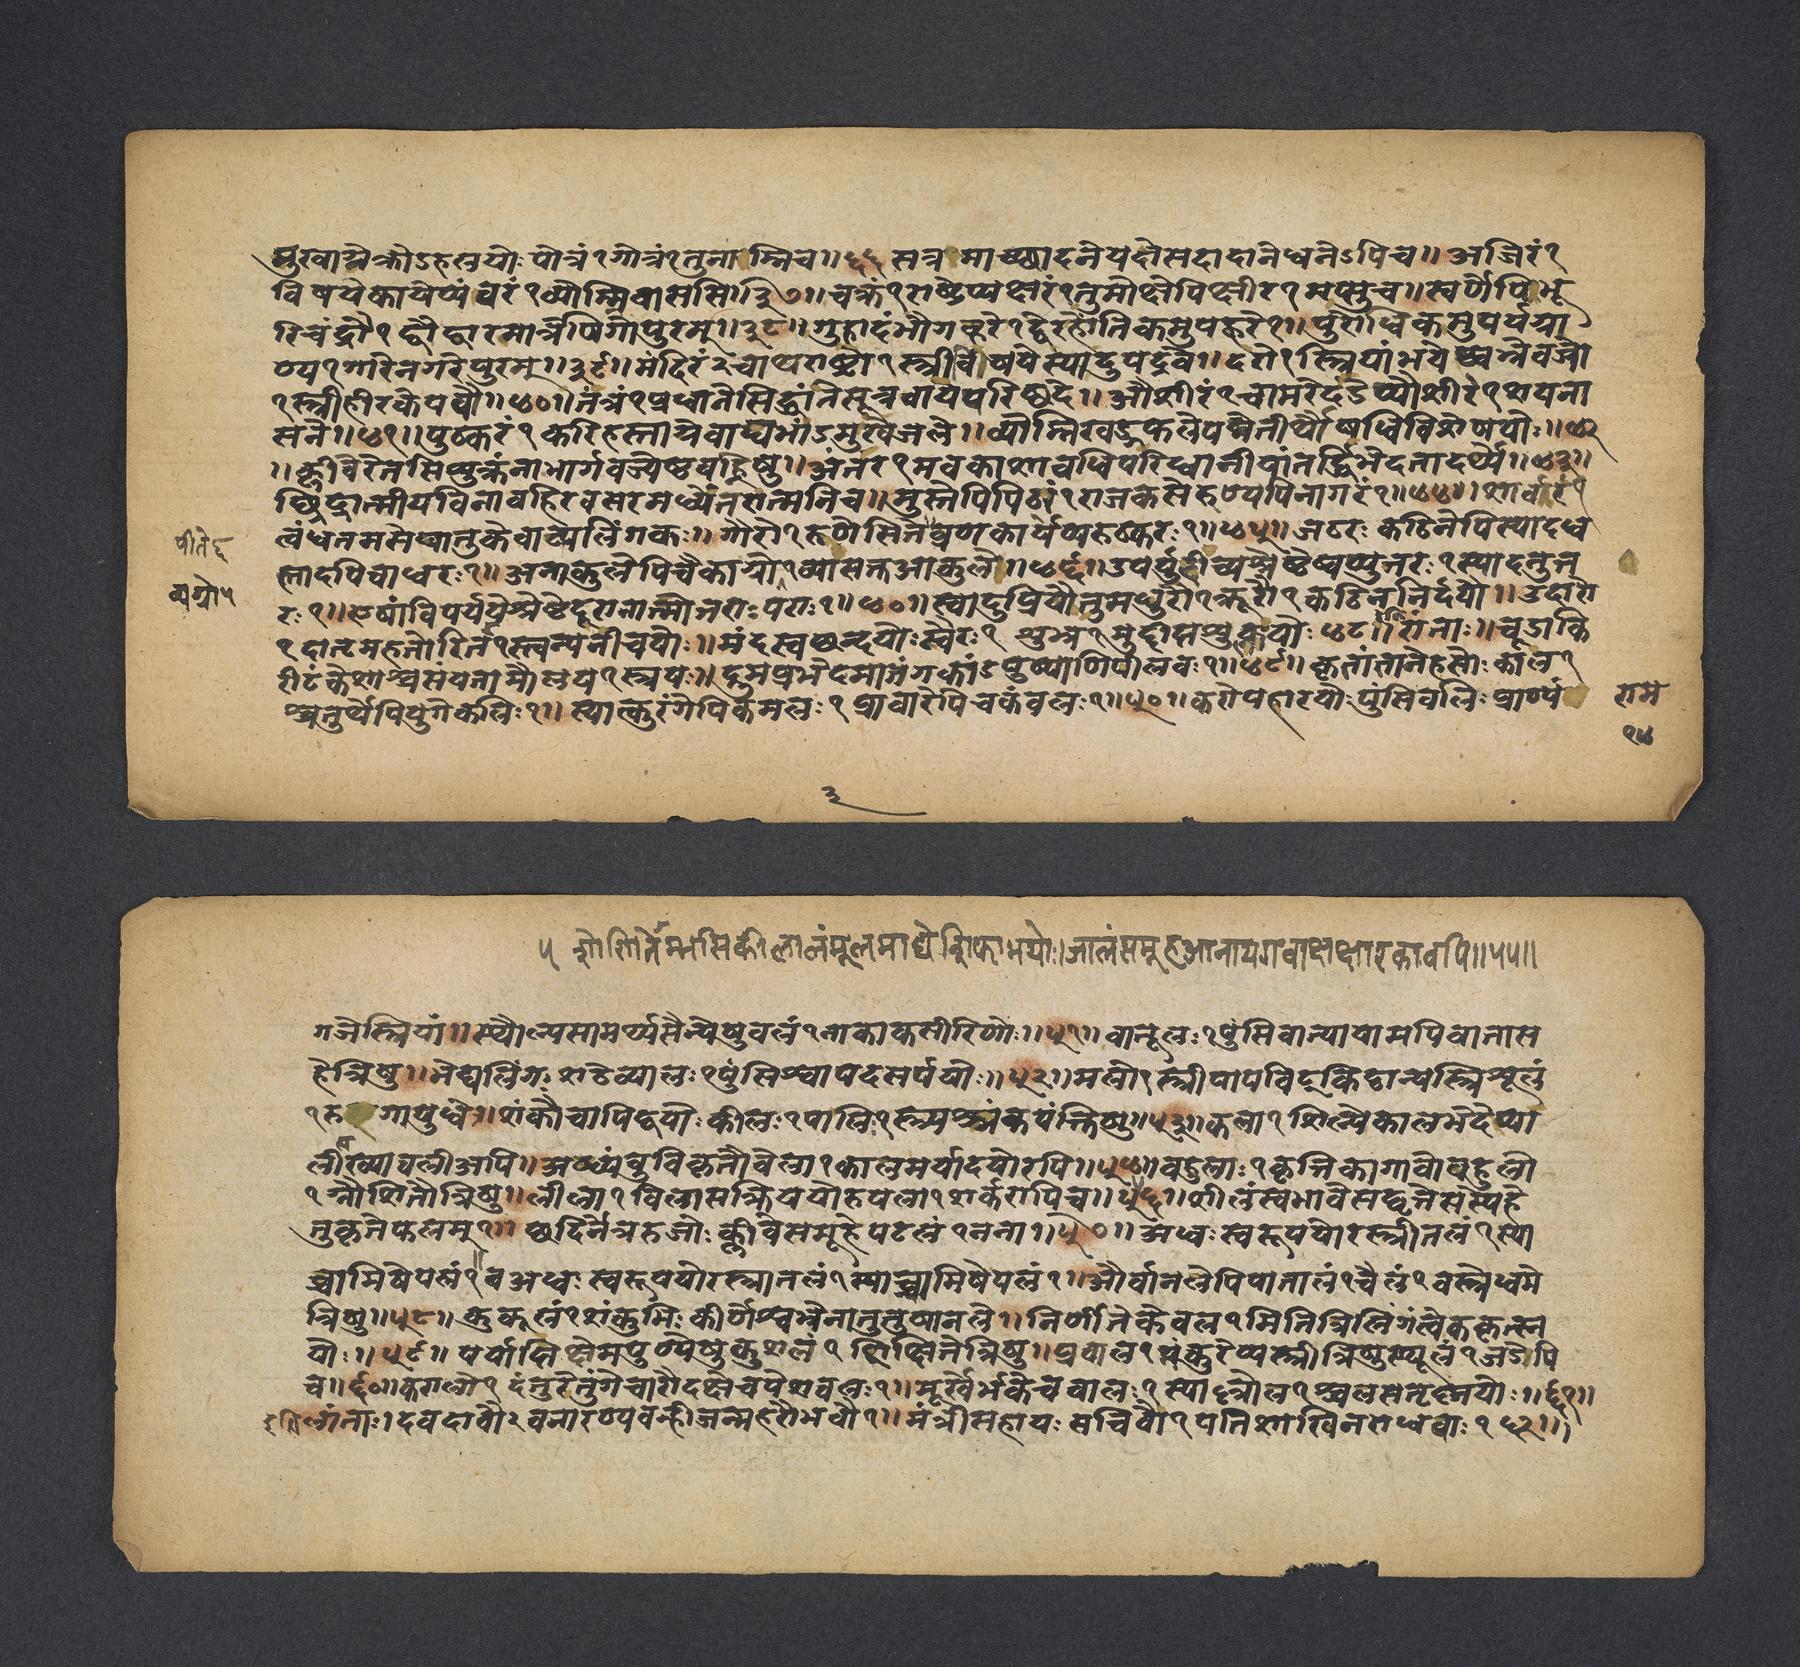 मुखाग्रे क्रोडहलयोः पोत्रं१गोत्रं१तुनाम्निच॥६६ सत्रमाच्छादनेयज्ञेसदादानेधनेऽपिच॥अजिरं१
विषयेकायेप्यंबरं१व्योम्निवाससि॥३७॥चक्रं१राष्ट्रेप्यक्षरं१तुमोक्षेपिक्षीर१मप्सुच॥स्वर्णेपिभू
रिचंद्रौ१द्वौद्वारमात्रेपिगोपुरम्॥३८॥गुहादंभौगह्वरे१द्वेरहोंतिकमुपह्वरे१॥पुरोधिकमुपर्यग्रा
ण्य१गारेनगरेपुरम्॥३९॥मंदिरं२चाथराष्ट्रो१स्त्रीविषयेस्यादुपद्रवे॥दरो१स्त्रियांभयेश्वभ्रेवज्रो
१स्त्रीहीरकेपवौ॥४०॥तंत्रं१प्रधानेसिद्धांतेसूत्रवायेपरिछदे॥औशीरं१चामरेदंडेप्यौशीरं१शयना
सने॥४१॥पुष्करं१करिहस्ताग्रेवाद्यभांडमुखेजले॥व्योम्निखड्गफलेपद्मेतीर्थौषधिविशेषयोः॥४२
॥अंतर१मवकाशावधिपरिधानांतर्द्धिभेदतादर्थ्ये॥४३॥
छिद्रात्मीयविनाबहिरवसरमध्येंतरात्मनिच॥मुस्तेपिपिठरं१राजकसेरुण्यपिनागरं१॥४४॥शार्वरं१
त्वंधतमसेघातुकेवाच्यलिंगकः॥गौरो१रुणेसितेव्रणकार्येप्यरुष्करः१॥४५॥जठरः कठिनेपिस्यादध
स्तादपिचाधरः१॥अनाकुलेपिचैकाग्रो१व्यासक्तआकुले॥४६॥उपर्युदीच्यश्रेष्ठेष्वप्युत्तरः१स्यादनुत्त
रः१॥एषांविपर्ययेश्रेष्ठेदूरानात्मोत्तराः पराः१॥४७॥स्वादुप्रियौतुमधुरौ१क्रूरौ१कठिननिर्दयौ॥उदारो
१दातृमहतोरितर१स्त्वन्यनीचयोः॥मंदस्वछन्दयोः स्वैरः१ शुभ्र१मुद्दीप्तशुक्लयोः ४८॥रांताः॥चूडाकि
रीटंकेशाश्चसंयतामौलय१स्त्रयः॥द्रुमप्रभेदमातंगकांडपुष्पाणिपीलवः१॥४९॥कृतांतानेहसोः काल१
श्चतुर्थेपियुगेकलिः१॥स्यात्कुरंगेपिकमलः१प्रावारेपिचकंबलः१॥५०॥करोपहारयोः पुंसिबलिः प्राण्यं
पीते६
व्यग्रो५
राम
१४
३
५ शोणितेम्भसिकीलालंमूलमाद्येशिफाभयोः।जालंसमूहआनायगवाक्षक्षारकावपि॥५५॥
गजेस्त्रियां॥स्थौल्यसामर्थ्यसैन्येषुबलं१नाकाकसीरिणोः॥५१॥वातूलः१पुंसिवात्यायामपिवातास
हेत्रिषु॥भेद्यलिंगः शठेव्यालः१पुंसिश्वापदसर्पयोः॥५२॥मलो१स्त्रीपापविट्किट्टान्यस्त्रिशूलं
१रु गायुधे॥शंकौचापिद्वयोः कीलः१पालिः१स्त्र्यश्र्यंकपंक्तिषु॥५३॥कला१शिल्पेकालभेदेप्या
लीसख्यावलीअपि॥अब्ध्यंबुविकृतौवेला१कालमर्यादयोरपि॥५४॥बहुलाः१कृत्तिकागावोबहुलो
१ग्नौशितौत्रिषु॥लीला१विलासक्रिययोरुपला१शर्करापिच॥५६॥शीलंस्वभावेसद्वृत्तेसस्येहे
तुकृतेफलम्१॥छदिर्नेत्ररुजोः क्लीबंसमूहेपटलं१नना॥५७॥अधः स्वरूपयोरस्त्रीतलं१स्या
च्चामिषेपलं१॥वअधः स्वरूपयोरस्त्रीतलं१स्याच्चामिषेपलं१॥और्वानलेपिपातालं१चैलं१वस्त्रेधमे
त्रिषु॥५८॥कुकूलं१शंकुभिः कीर्णेश्वभ्रेनातुतुषानले॥निर्णीतेकेवल१मितित्रिलिंगंत्वेककृत्स्न
योः॥५९॥पर्याप्तिक्षेमपुण्येषुकुशलं१शिक्षितेत्रिषु॥प्रवाल१मंकुरेप्यस्त्रीत्रिषुस्थूलं१जडेपि
च॥६०॥करालो१दंतुरेतुंगेचारौदक्षेचपेशलः१॥मूर्खेर्भकेचबालः१स्याल्लोल१श्चलसतृष्णयोः॥६१॥
इतिलांताः।दवदावौ२वनारण्यवन्हीजन्महरौभवौ१॥मंत्रीसहायः सचिवौ१पतिशाखिनराधवाः१६२॥